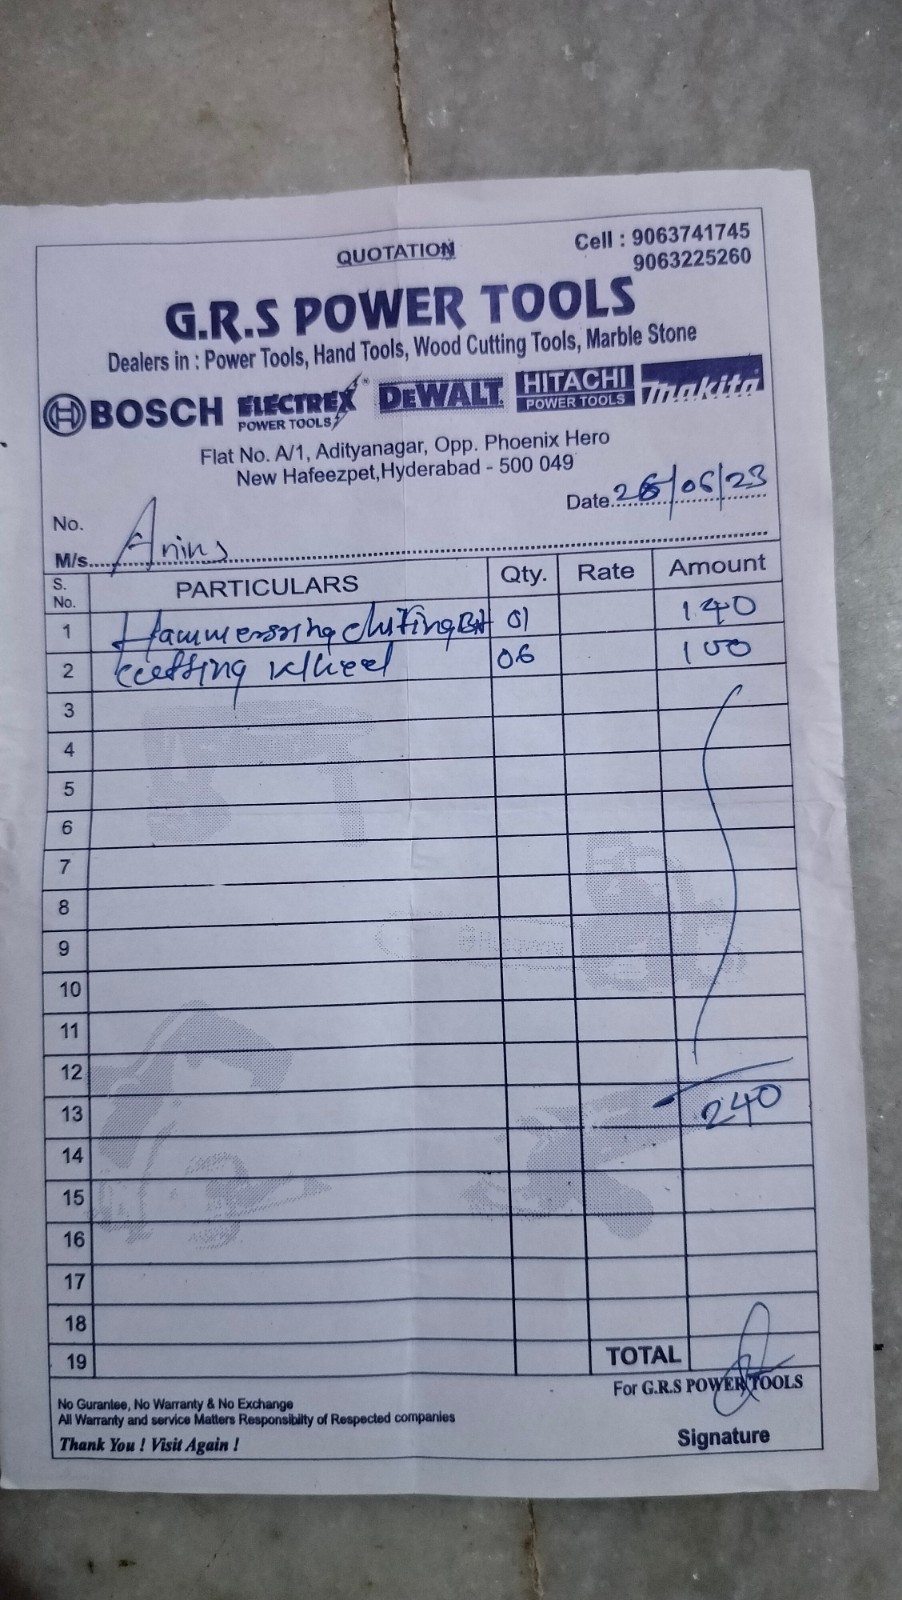 QUOTATION
Cell : 9063741745
9063225260
G.R.S POWER TOOLS
Dealers in : Power Tools, Hand Tools, Wood Cutting Tools, Marble Stone
BOSCH ELECTREX POWER TOOLS DEWALT HITACHI POWER TOOLS makita
Flat No. A/1, Adityanagar, Opp. Phoenix Hero
New Hafeezpet,Hyderabad - 500 049
Date 26/06/23
No.
M/s.
S. No. PARTICULARS Qty. Rate Amount
1 Hammerring 01 140
2 cutting wheel 06 100
3
4
5
6
7
8
9
10
11
12
13 240
14
15
16
17
18
19 TOTAL
For G.R.S POWER TOOLS
No Gurantee, No Warranty & No Exchange
All Warranty and service Matters Responsibilty of Respected companies
Thank You ! Visit Again !
Signature